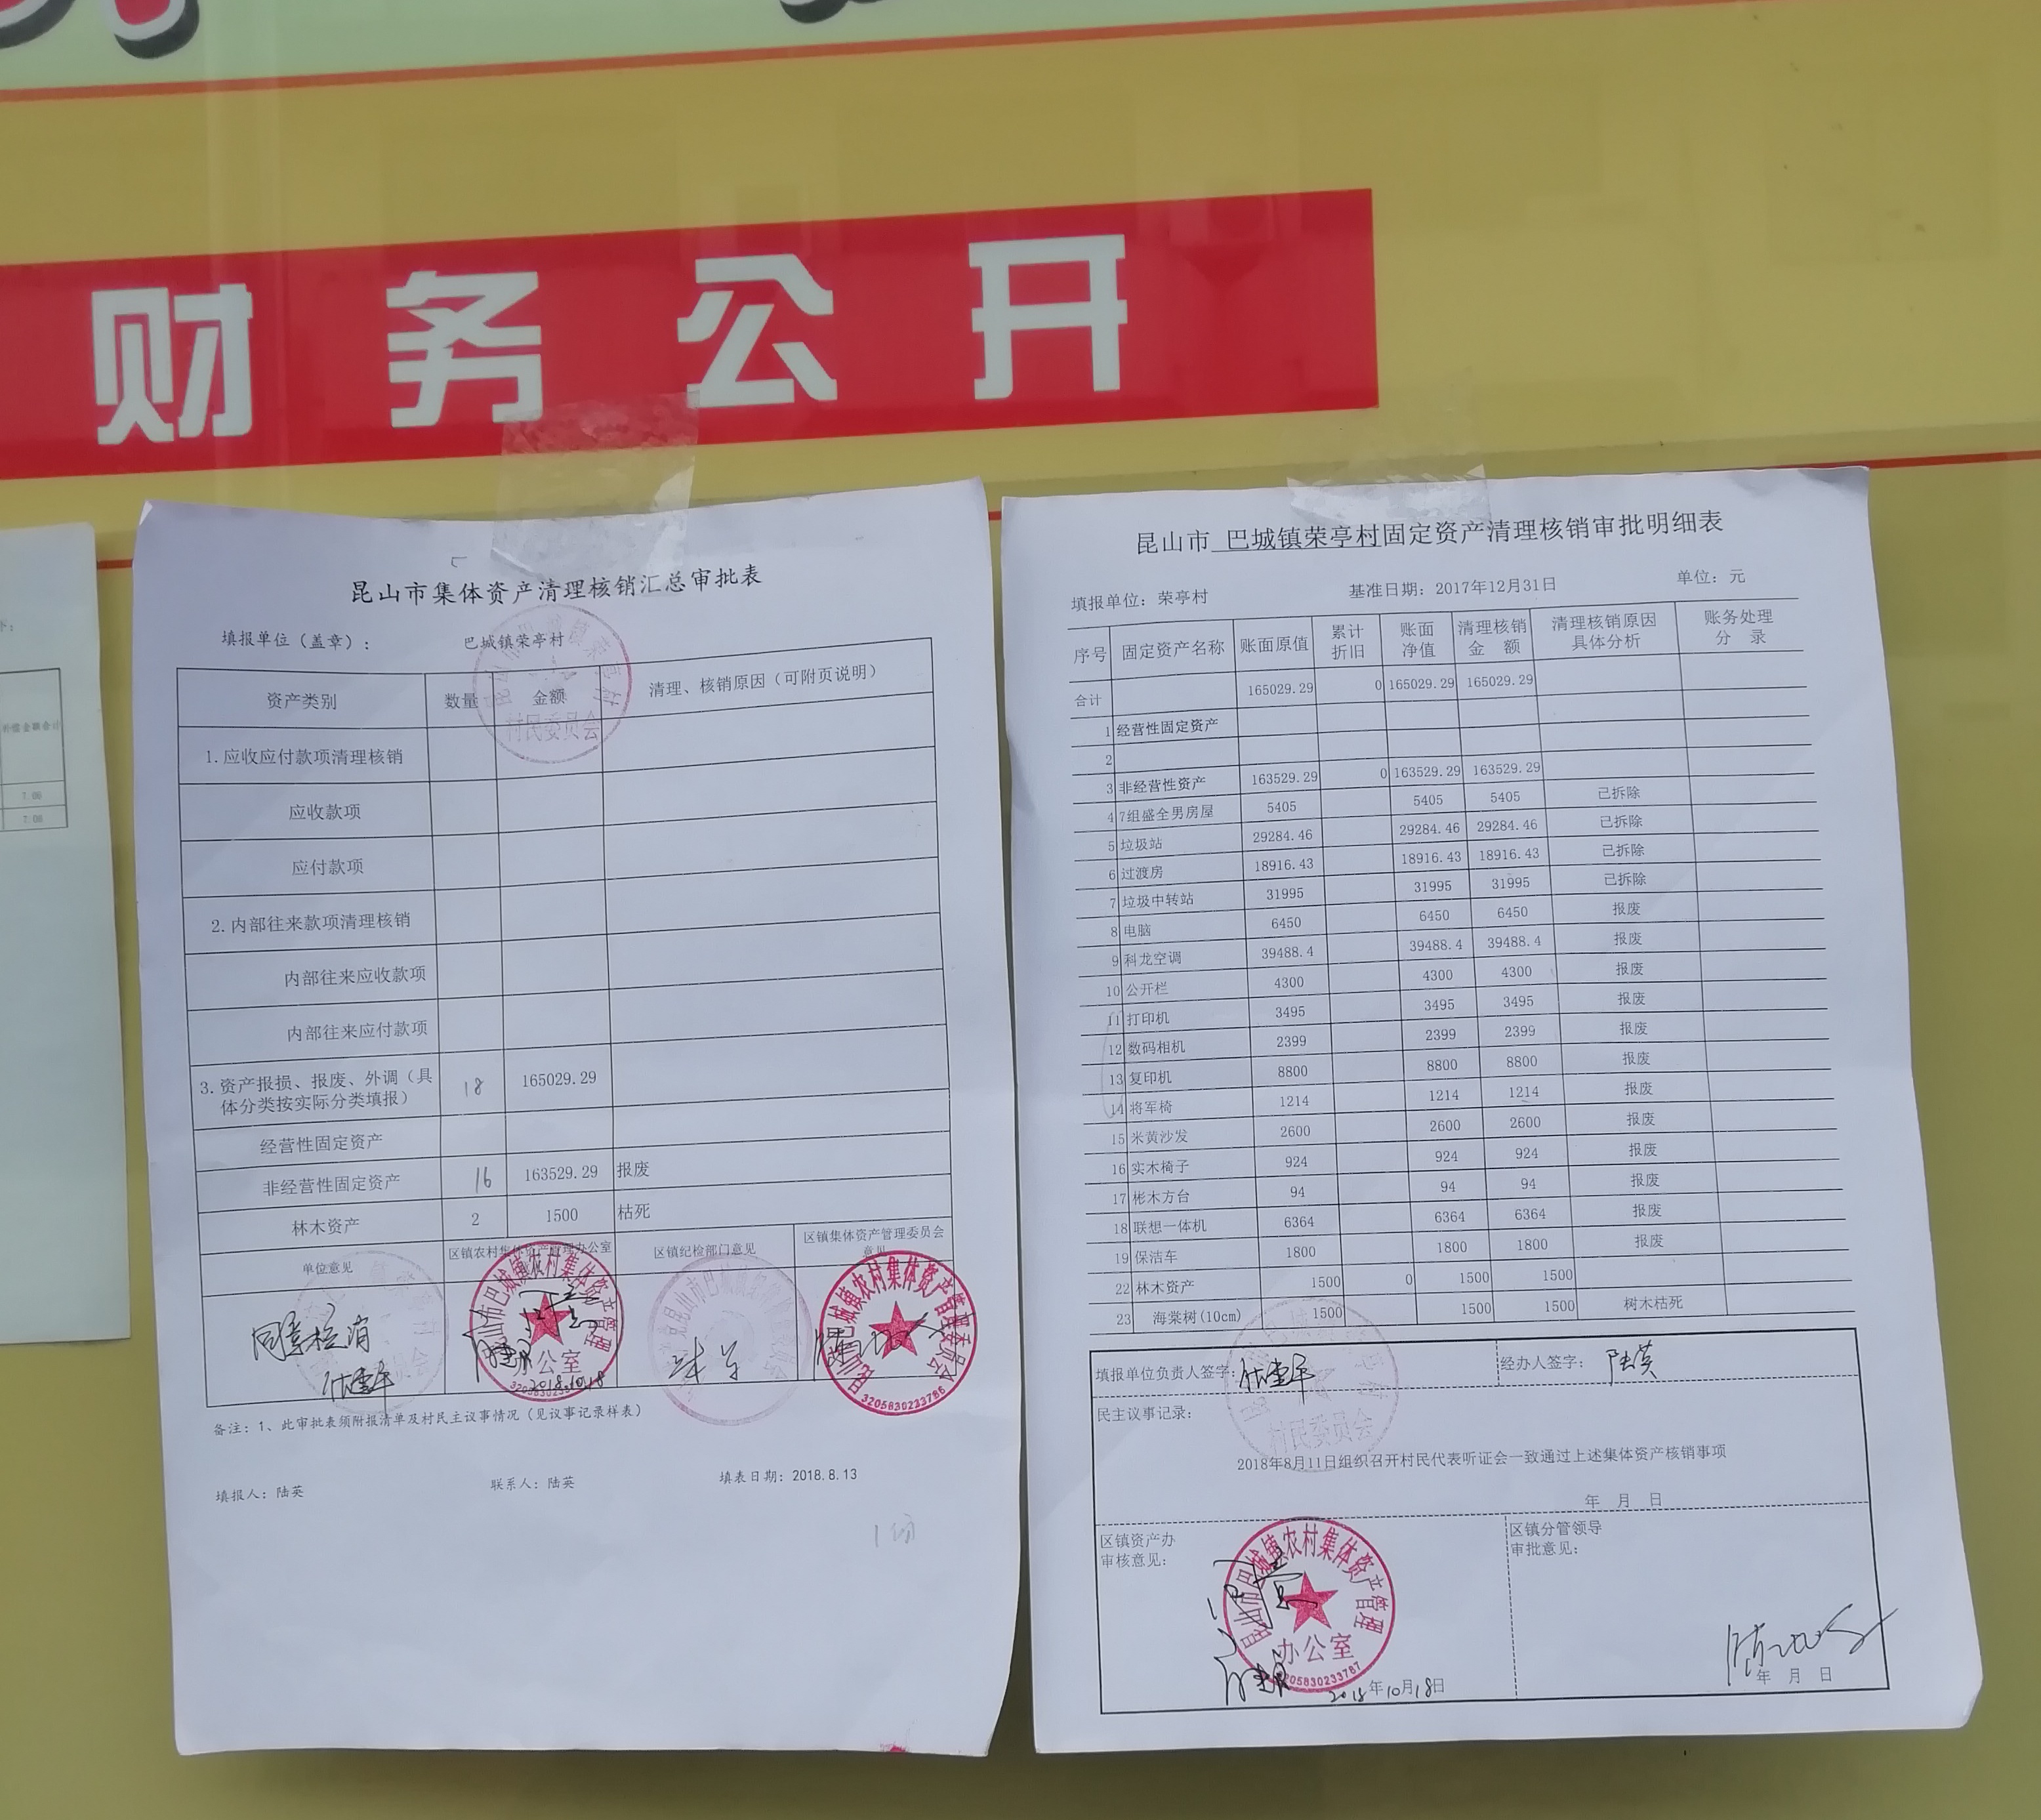 财务公开
昆山市集体资产清理核销汇总审批表
填报单位（盖章）： 巴城镇荣亭村
资产类别 数量 金额 清理、核销原因（可附页说明）
1.应收应付款项清理核销
应收款项
应付款项
2.内部往来款项清理核销
内部往来应收款项
内部往来应付款项
3.资产报损、报废、外调（具体分类按实际分类填报） 18 165029.29
经营性固定资产
非经营性固定资产 16 163529.29 报废
林木资产 2 1500 枯死
单位意见 区镇农村集体资产管理办公室 区镇纪检部门意见 区镇集体资产管理委员会意见
同意核销
2018.10.18
村民委员会
昆山市巴城镇农村集体资产管理
办公室
昆山市巴城镇农村集体资产管理委员会
3205830233786
备注：1、此审批表须附报清单及村民主议事情况（见议事记录样表）
填报人：陆英 联系人：陆英 填表日期：2018.8.13
1份
昆山市 巴城镇荣亭村固定资产清理核销审批明细表
填报单位：荣亭村 基准日期：2017年12月31日 单位：元
序号 固定资产名称 账面原值 累计折旧 账面净值 清理核销金 额 清理核销原因具体分析 账务处理分 录
合计 165029.29 0 165029.29 165029.29
1 经营性固定资产
2
3 非经营性资产 163529.29 0 163529.29 163529.29
4 7组盛全男房屋 5405 5405 5405 已拆除
5 垃圾站 29284.46 29284.46 29284.46 已拆除
6 过渡房 18916.43 18916.43 18916.43 已拆除
7 垃圾中转站 31995 31995 31995 已拆除
8 电脑 6450 6450 6450 报废
9 科龙空调 39488.4 39488.4 39488.4 报废
10 公开栏 4300 4300 4300 报废
11 打印机 3495 3495 3495 报废
12 数码相机 2399 2399 2399 报废
13 复印机 8800 8800 8800 报废
14 将军椅 1214 1214 1214 报废
15 米黄沙发 2600 2600 2600 报废
16 实木椅子 924 924 924 报废
17 彬木方台 94 94 94 报废
18 联想一体机 6364 6364 6364 报废
19 保洁车 1800 1800 1800 报废
22 林木资产 1500 0 1500 1500
23 海棠树(10cm) 1500 1500 1500 树木枯死
填报单位负责人签字： 经办人签字： 陆英
民主议事记录：
村民委员会
2018年8月11日组织召开村民代表听证会一致通过上述集体资产核销事项
年 月 日
区镇资产办审核意见： 区镇分管领导审批意见：
昆山市巴城镇农村集体资产管理
办公室
3205830233787
2018年10月18日
年 月 日
补偿金额合计
7.00
7.00